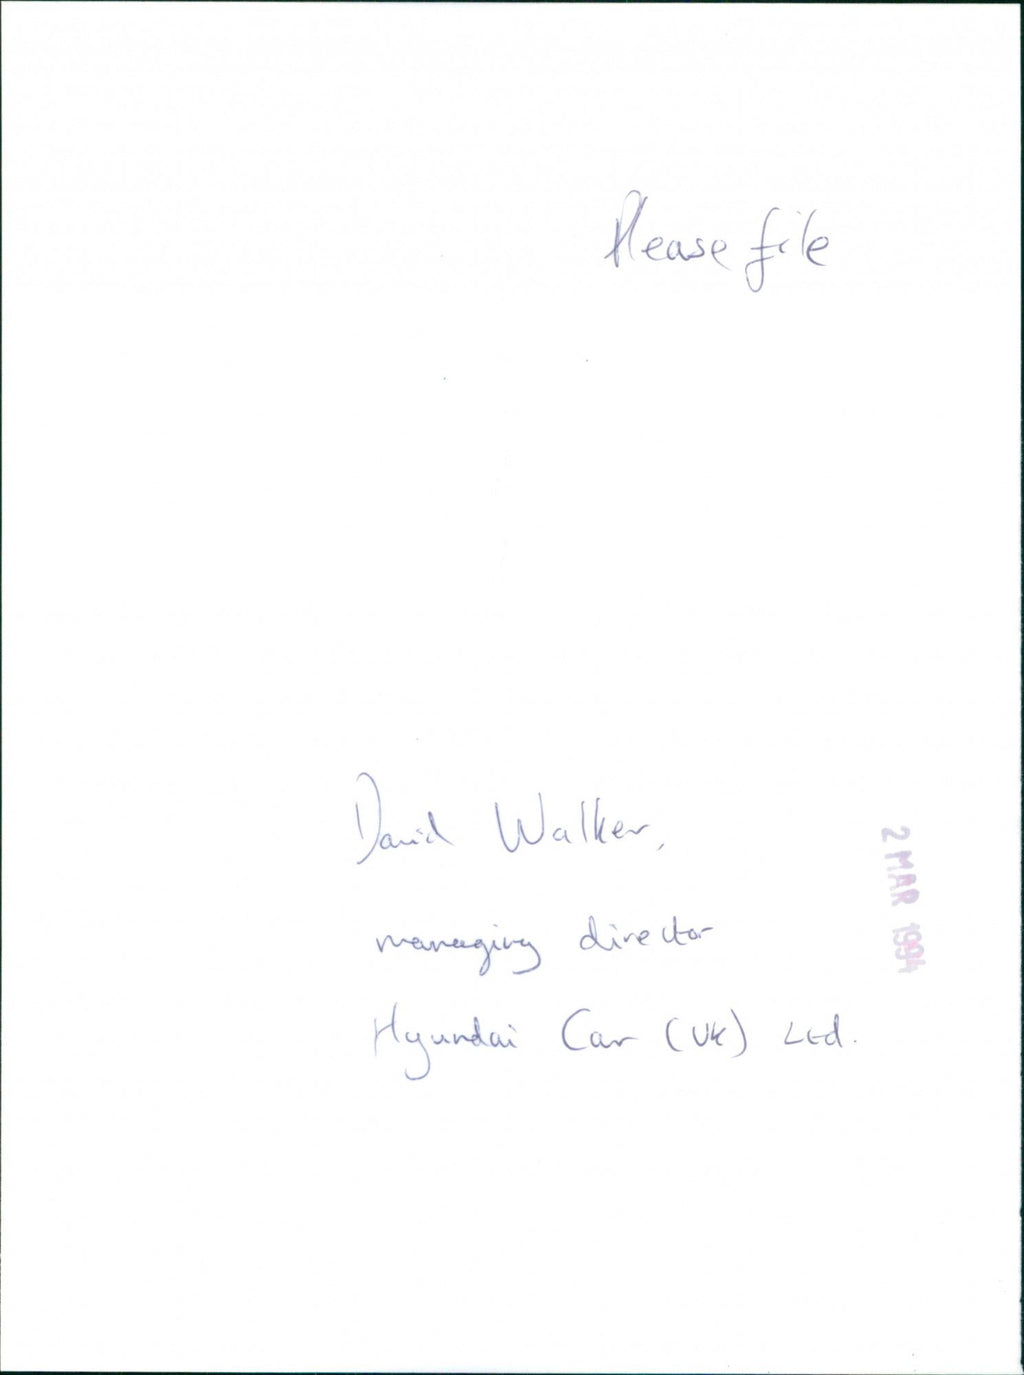 Please file
David Walker,
managing director
Hyundai Car (UK) Ltd.
2 MAR 1994